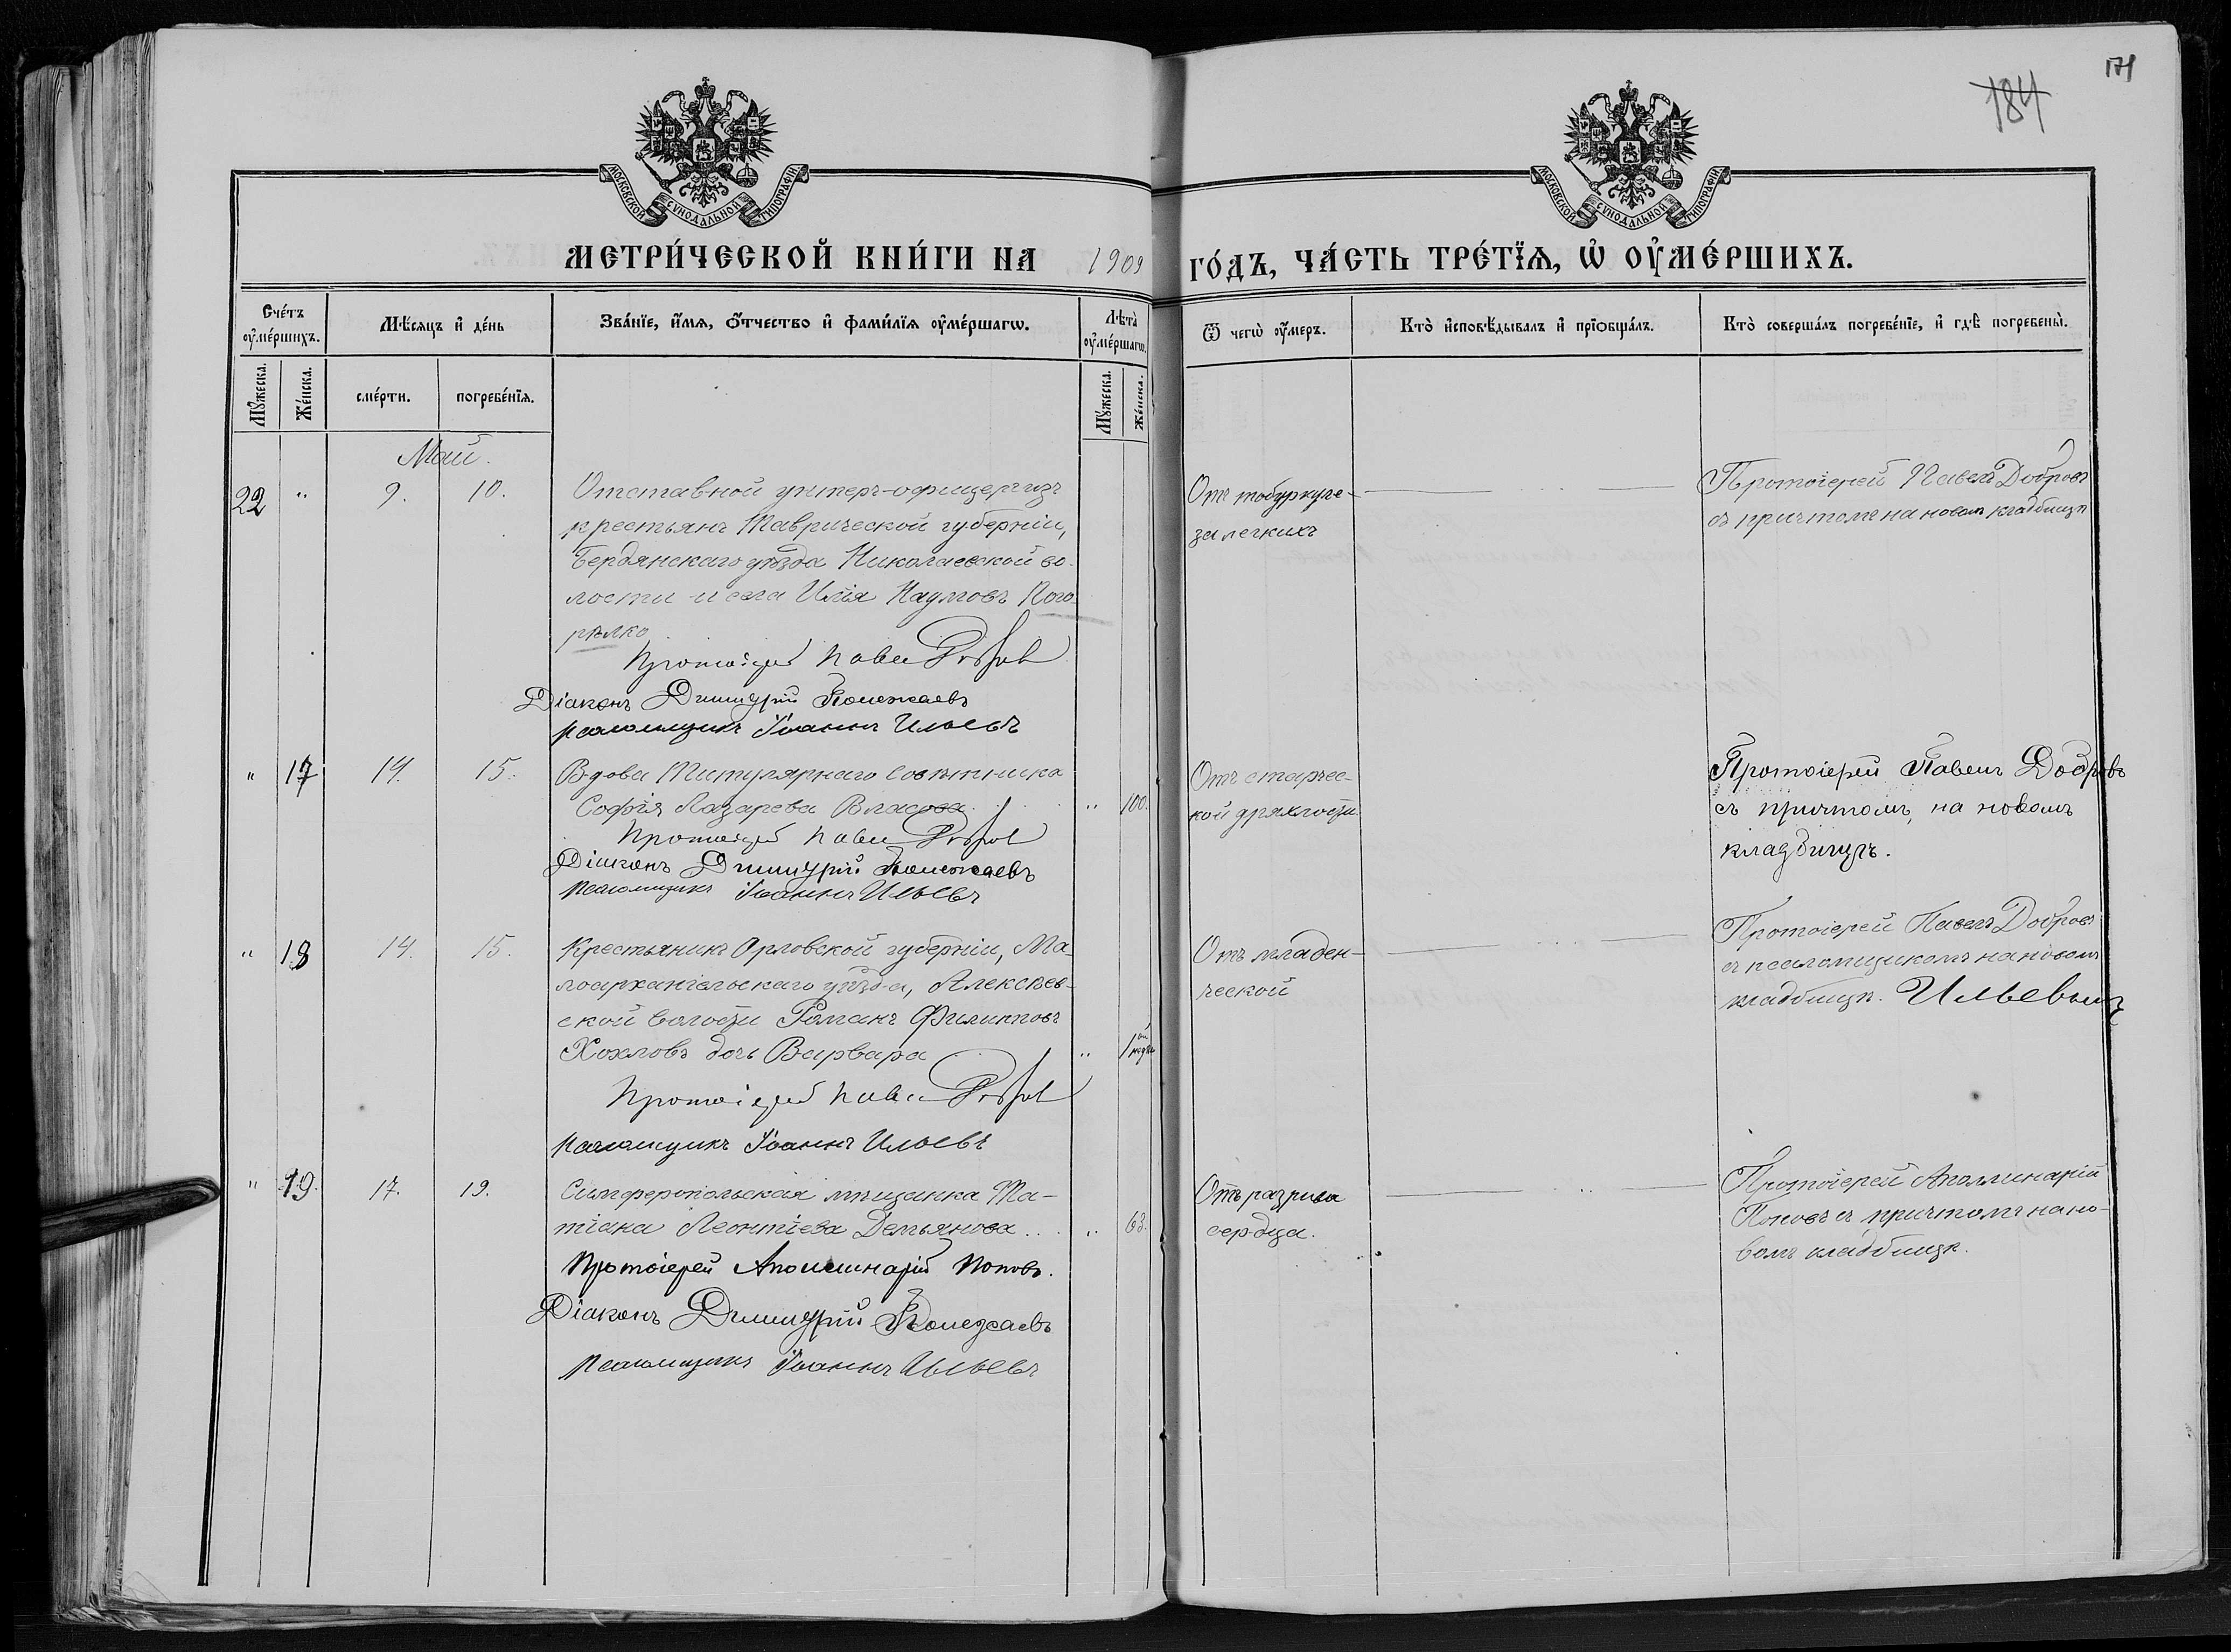 171
184
МОСКОВСКОЙ СУНОДАЛЬНОЙ ТИПОГРАФІИ
МОСКОВСКОЙ СУНОДАЛЬНОЙ ТИПОГРАФІИ
МЕТРИ́ЧЕСКОЙ КНИ́ГИ НА 1909 ГО́ДЪ, ЧА́СТЬ ТРЕ́ТЇѦ, Ѡ ОУМЕ́РШИХЪ.
Сче́тъ оумє́ршихъ.
Мѣ́сяцъ и де́нь
Зва́нїе, и́мѧ, ѻ́тчество и фами́лїѧ оуме́ршагѡ.
Лѣта̀ оуме́ршагѡ.
Ѿ чегѡ̀ оу́меръ.
Кто̀ исповѣ́дывалъ и прїѡбща́лъ.
Кто̀ соверша́лъ погребе́нїе, и гдѣ̀ погребены̀.
Му́жеска.
Же́нска.
сме́рти.
погребе́нїѧ.
Му́жеска.
Же́нска.
Май.
22 " 9. 10.
Отставной унтеръ-офицеръ изъ
крестьянъ Таврической губерніи,
Бердянскаго уѣзда Николаевской во-
лости и села Илія Наумовъ Пого-
рѣлко
Протоіерей Павелъ Добровъ
Діаконъ Димитрій Полежаевъ
Псаломщикъ Іоаннъ Ильевъ
Отъ тобуркуле-
за легкихъ
Протоіерей Павелъ Добровъ
съ причтомъ на новомъ кладбищѣ
" 17 14. 15.
Вдова Титулярнаго Совѣтника
Софія Лазарева Власова " 100.
Протоіерей Павелъ Добровъ
Діаконъ Димитрій Полежаевъ
Псаломщикъ Іоаннъ Ильевъ
Отъ старчес-
кой дряхлости
Протоіерей Павелъ Добровъ
съ причтомъ, на новомъ
кладбищѣ.
" 18 14. 15.
Крестьянинъ Орловской губерніи, Ма-
лоархангельскаго уѣзда, Алексѣев-
ской волости Романъ Филипповъ
Хохловъ дочь Варвара "
Протоіерей Павелъ Добровъ
Псаломщикъ Іоаннъ Ильевъ
Отъ младен-
ческой
Протоіерей Павелъ Добровъ
съ псаломщикомъ на новомъ
кладбищѣ. Ильевымъ
" 19. 17. 19.
Симферопольская мѣщанка Та-
тіана Леонтіева Демьянова " 63.
Протоіерей Аполлинарій Поповъ.
Діаконъ Димитрій Полежаевъ
Псаломщикъ Іоаннъ Ильевъ
Отъ разрыва
сердца.
Протоіерей Аполлинарій
Поповъ съ причтомъ на но-
вомъ кладбищѣ.